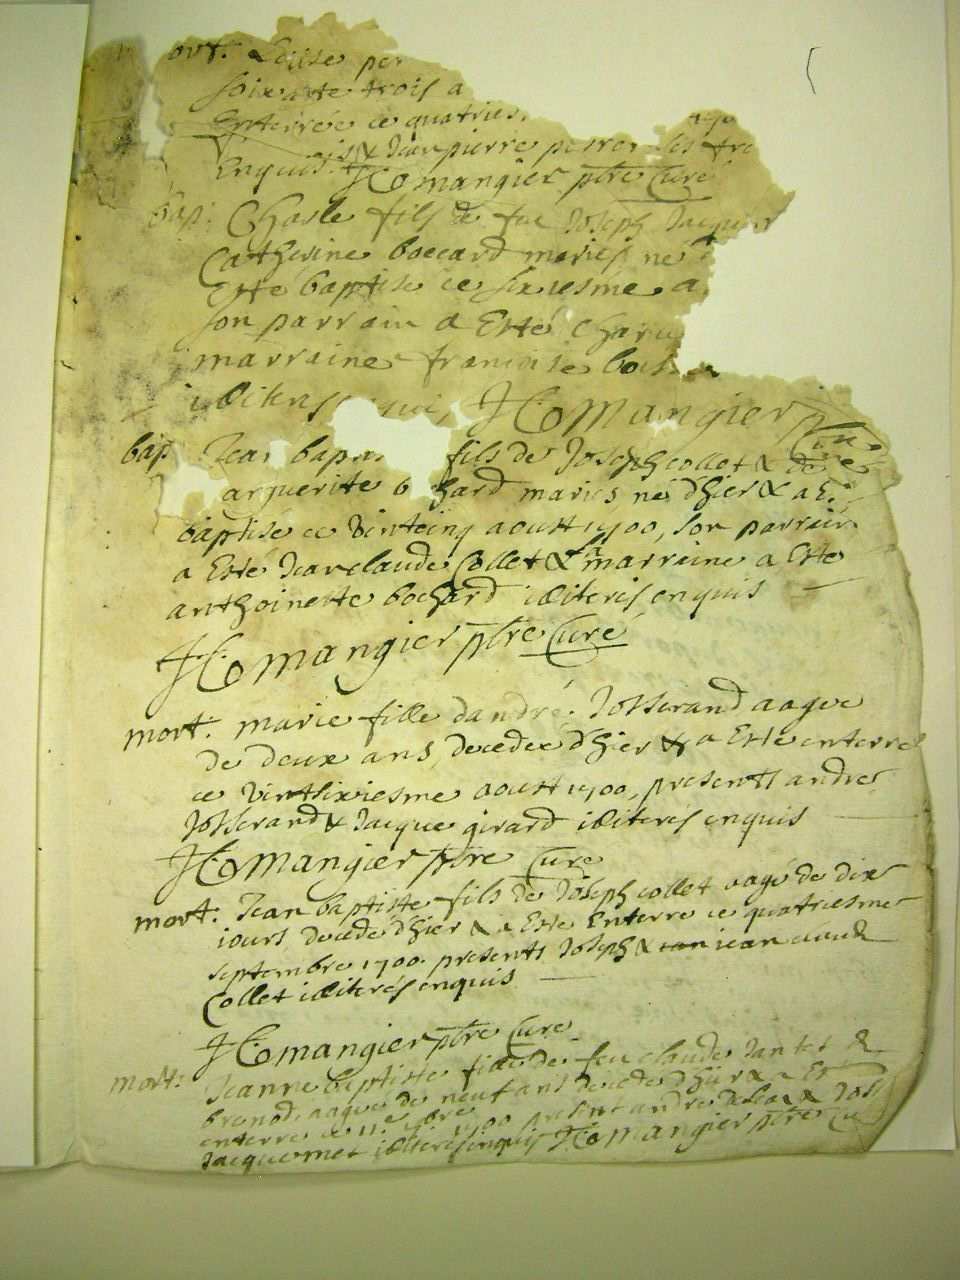 mort. Louise per
soixante trois a
Enterrée ce quatries
Enquis. & Jean pierre perrer les fre
JComangier ptre Curé
bap: Charle fils de feu Joseph Jacquier
Catherine boccard mariés né
esté baptisé ce sixiesme a
son parrain a Esté Charle
marraine francoise boc
illiteres JComangier ptre
Curé
bap Jean bapt fils de Joseph collet & de
arguerite bochard mariés né d'hier & a E
baptisé ce vintcinq aoust 1700, son parrain
a Esté Jean claude Collet & sa marraine a Esté
anthoinette bochard illiterés enquis
JComangier ptre Curé
mort: marie fille dandré Josserand aagée
de deux ans decedee d'hier & a Esté enterrée
ce vintsixiesme aoust 1700, presents andre
Josserand & Jacque girard illiterés enquis
JComangier ptre Curé
mort: Jean baptiste fils de Joseph collet aagé de dix
jours decedé d'hier & a Esté Enterré ce quatriesme
septembre 1700. presents Joseph & jean claude
Collet illiterés enquis
JComangier ptre Curé
mort: Jeanne baptiste fille de feu claude Jantet &
brenod, aagée de neuf ans decedée d'hier & a Esté
enterré ce 11e 7bre 1700 present andre & Jos
Jacquemet illiterés enquis JComangier ptre Cu